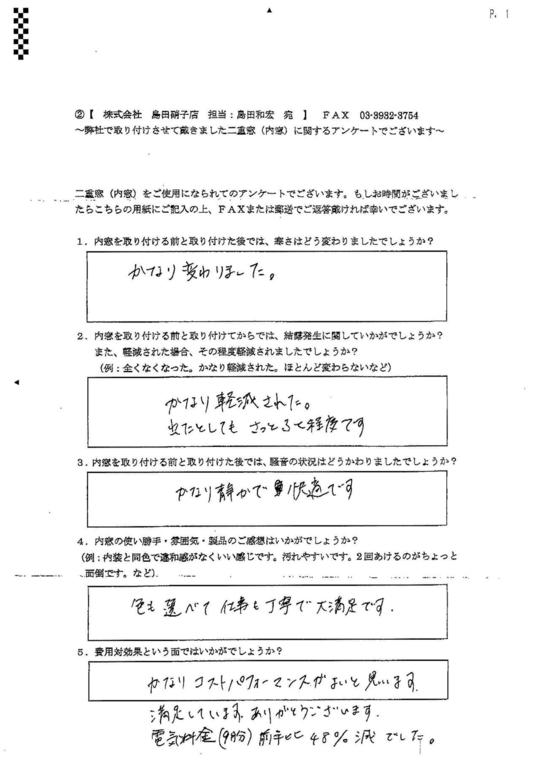 P. 1
②【 株式会社 島田硝子店 担当：島田和宏 宛 】 FAX 03-3932-3754
～弊社で取り付けさせて戴きました二重窓（内窓）に関するアンケートでございます～
二重窓（内窓）をご使用になられてのアンケートでございます。もしお時間がございまし
たらこちらの用紙にご記入の上、FAXまたは郵送でご返答戴ければ幸いでございます。
1．内窓を取り付ける前と取り付けた後では、寒さはどう変わりましたでしょうか？
かなり変わりました。
2．内窓を取り付ける前と取り付けてからでは、結露発生に関していかがでしょうか？
また、軽減された場合、その程度軽減されましたでしょうか？
（例：全くなくなった。かなり軽減された。ほとんど変わらないなど）
かなり軽減された。
出たとしても さっとふく程度です
3．内窓を取り付ける前と取り付けた後では、騒音の状況はどうかわりましたでしょうか？
かなり静かで 快適です
4．内窓の使い勝手・雰囲気・製品のご感想はいかがでしょうか？
（例：内装と同色で違和感がなくいい感じです。汚れやすいです。2回あけるのがちょっと
面倒です。など）
色も選べて 仕事も丁寧で大満足です。
5．費用対効果という面ではいかがでしょうか？
かなりコストパフォーマンスがよいと思います。
満足しています。ありがとうございます。
電気料金(9月分) 前年比 48%減でした。